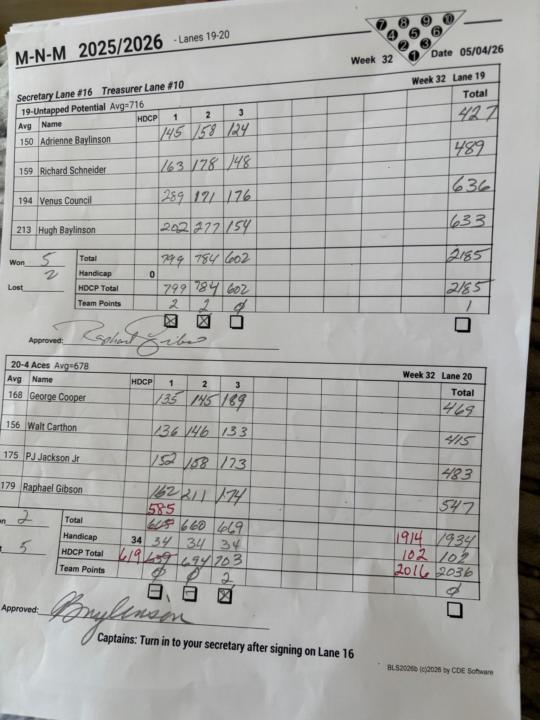 M-N-M 2025/2026 - Lanes 19-20
7 8 9 10
4 5 6
2 3
1
Week 32 Date 05/04/26
Secretary Lane #16 Treasurer Lane #10
Week 32 Lane 19
19-Untapped Potential Avg=716
Avg Name HDCP 1 2 3 Total
150 Adrienne Baylinson 145 158 124 427
159 Richard Schneider 163 178 148 489
194 Venus Council 289 171 176 636
213 Hugh Baylinson 202 277 154 633
Won 5 Total 799 784 602 2185
2 Handicap 0
Lost HDCP Total 799 784 602 2185
Team Points 2 2 0 1
Approved: Raphael Gibson
20-4 Aces Avg=678 Week 32 Lane 20
Avg Name HDCP 1 2 3 Total
168 George Cooper 135 145 189 469
156 Walt Carthon 136 146 133 415
175 PJ Jackson Jr 152 158 173 483
179 Raphael Gibson 162 211 174 547
585
on 2 Total 660 669 1914 1934
Handicap 34 34 34 34 102 102
t 5 HDCP Total 619 639 694 703 2016 2036
Team Points 0 0 2 0
Approved: Baylinson
Captains: Turn in to your secretary after signing on Lane 16
BLS2026b (c)2026 by CDE Software